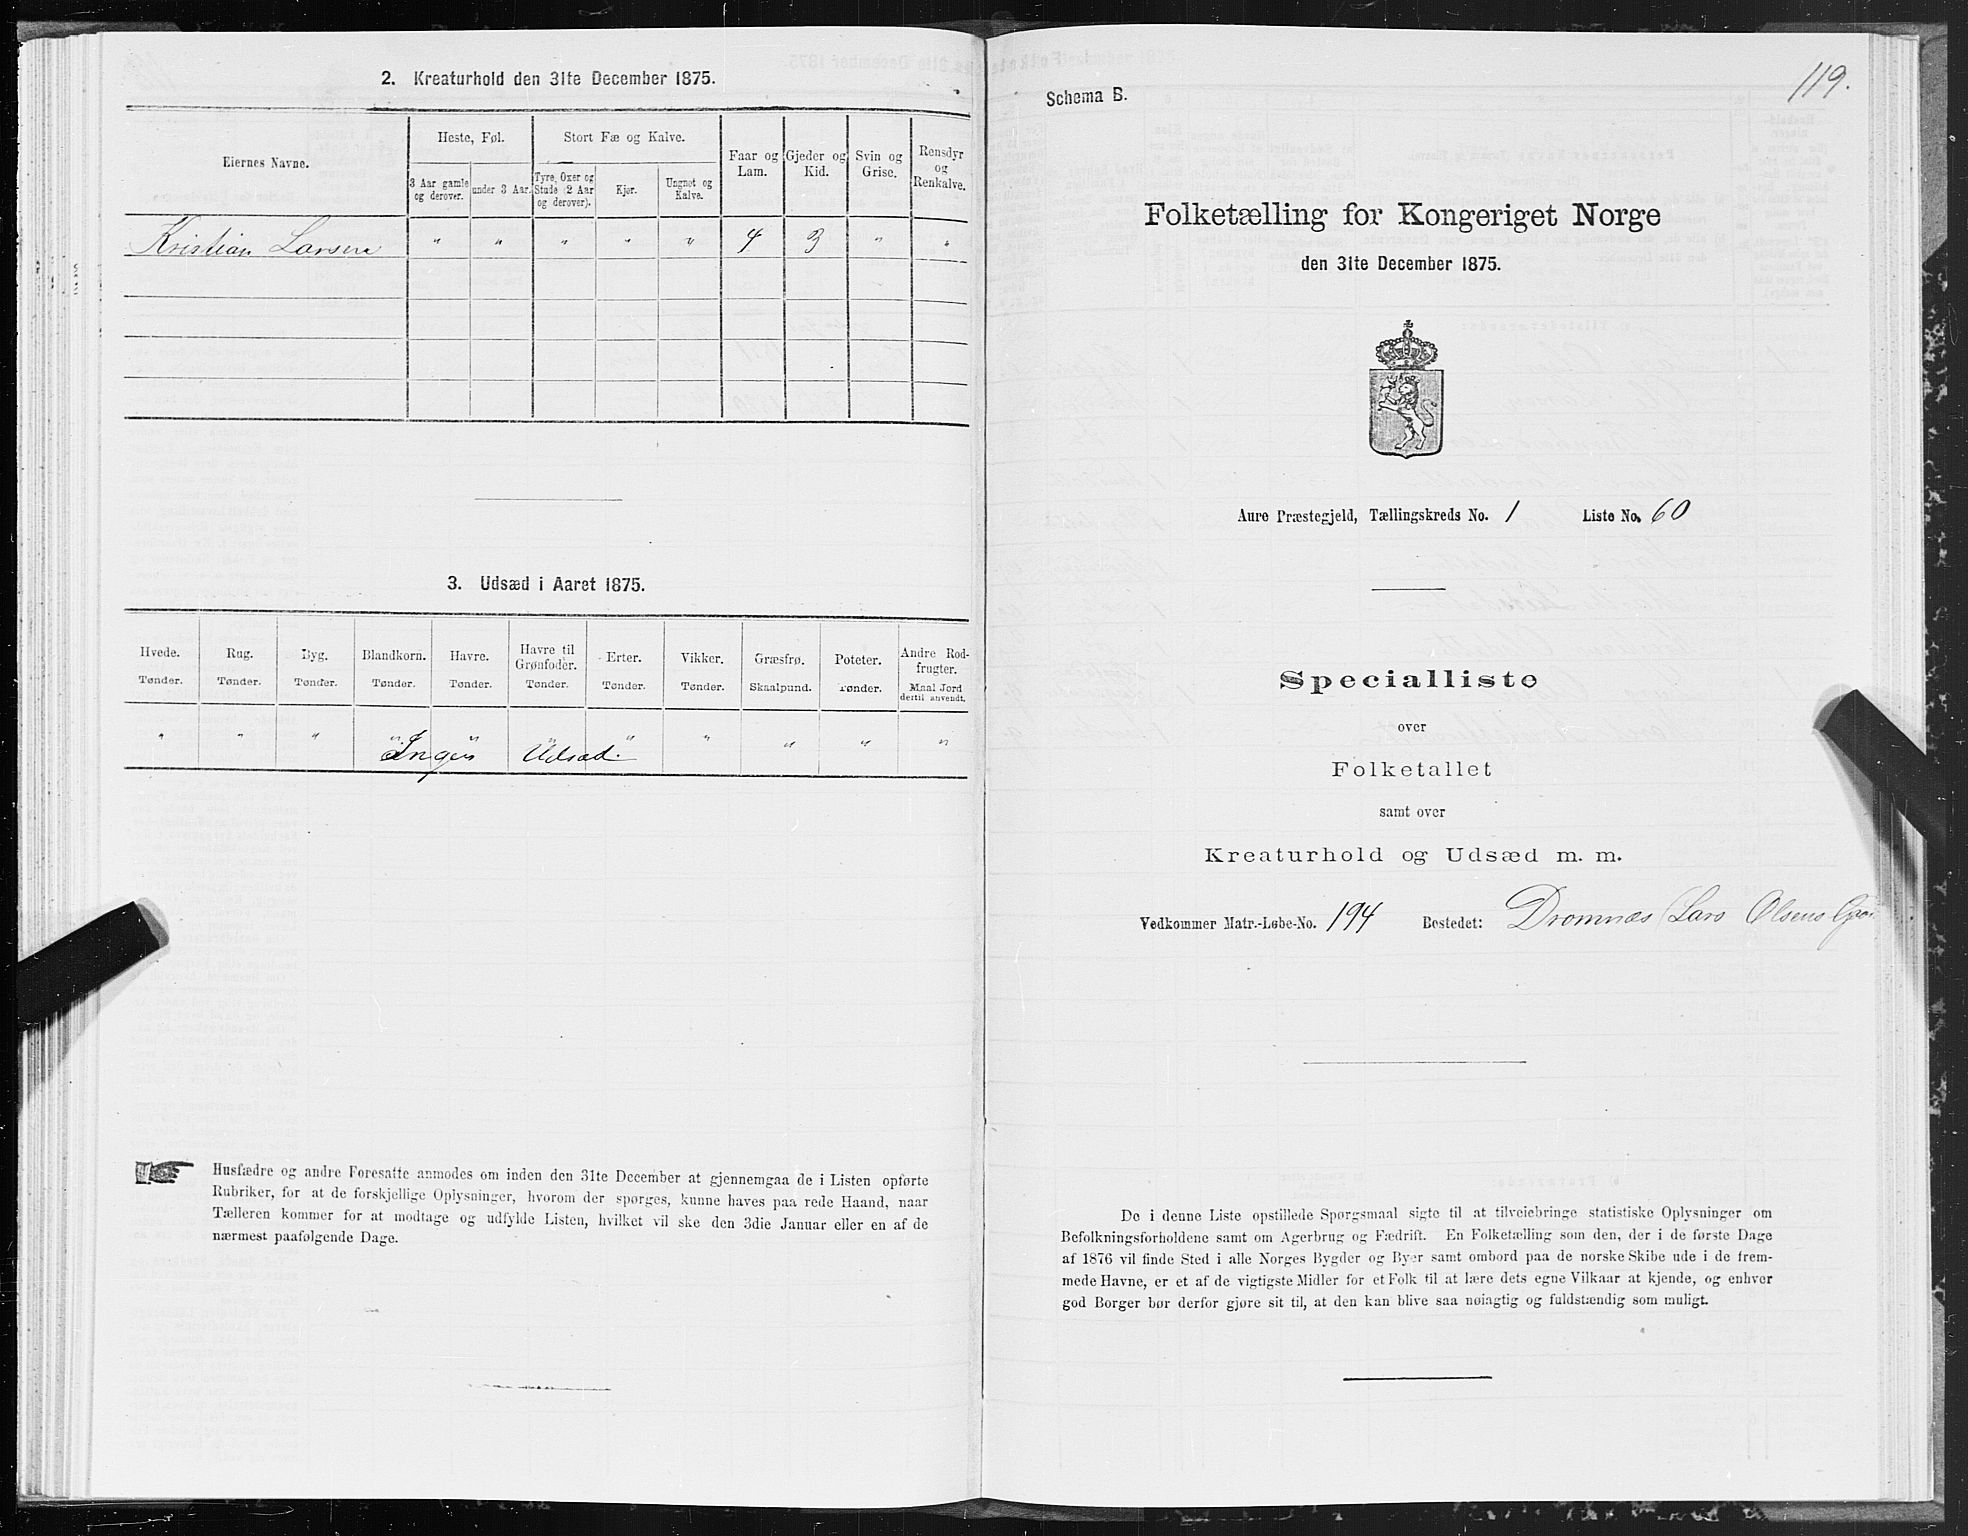 2. Kreaturhold den 31te December 1875.
Eiernes Navne.
Heste, Føl.
3 Aar gamle og derover.
under 3 Aar.
Stort Fæ og Kalve.
Tyre, Oxer og Stude (2 Aar og derover).
Kjør.
Ungnøt og Kalve.
Faar og Lam.
Gjeder og Kid.
Svin og Grise.
Rensdyr og Renkalve.
Kristian Larsen " " " " " 4 3 " "
3. Udsæd i Aaret 1875.
Hvede. Rug. Byg. Blandkorn. Havre. Havre til Grønfoder. Erter. Vikker. Græsfrø. Poteter. Andre Rodfrugter.
Tønder. Tønder. Tønder. Tønder. Tønder. Tønder. Tønder. Tønder. Skaalpund. Tønder. Maal Jord dertil anvendt.
" " " " " " " " " " "
Ingen Udsæd.
Husfædre og andre Foresatte anmodes om inden den 31te December at gjennemgaa de i Listen opførte
Rubriker, for at de forskjellige Oplysninger, hvorom der spørges, kunne haves paa rede Haand, naar
Tælleren kommer for at modtage og udfylde Listen, hvilket vil ske den 3die Januar eller en af de
nærmest paafølgende Dage.
119.
Schema B.
Folketælling for Kongeriget Norge
den 31te December 1875.
Aure Præstegjeld, Tællingskreds No. 1 Liste No. 60
Specialliste
over
Folketallet
samt over
Kreaturhold og Udsæd m. m.
Vedkommer Matr.-Løbe-No. 194 Bostedet: Dromnæs (Lars Olsens
De i denne Liste opstillede Spørgsmaal sigte til at tilveiebringe statistiske Oplysninger om
Befolkningsforholdene samt om Agerbrug og Fædrift. En Folketælling som den, der i de første Dage
af 1876 vil finde Sted i alle Norges Bygder og Byer samt ombord paa de norske Skibe ude i de frem-
mede Havne, er et af de vigtigste Midler for et Folk til at lære dets egne Vilkaar at kjende, og enhver
god Borger bør derfor gjøre sit til, at den kan blive saa nøiagtig og fuldstændig som muligt.